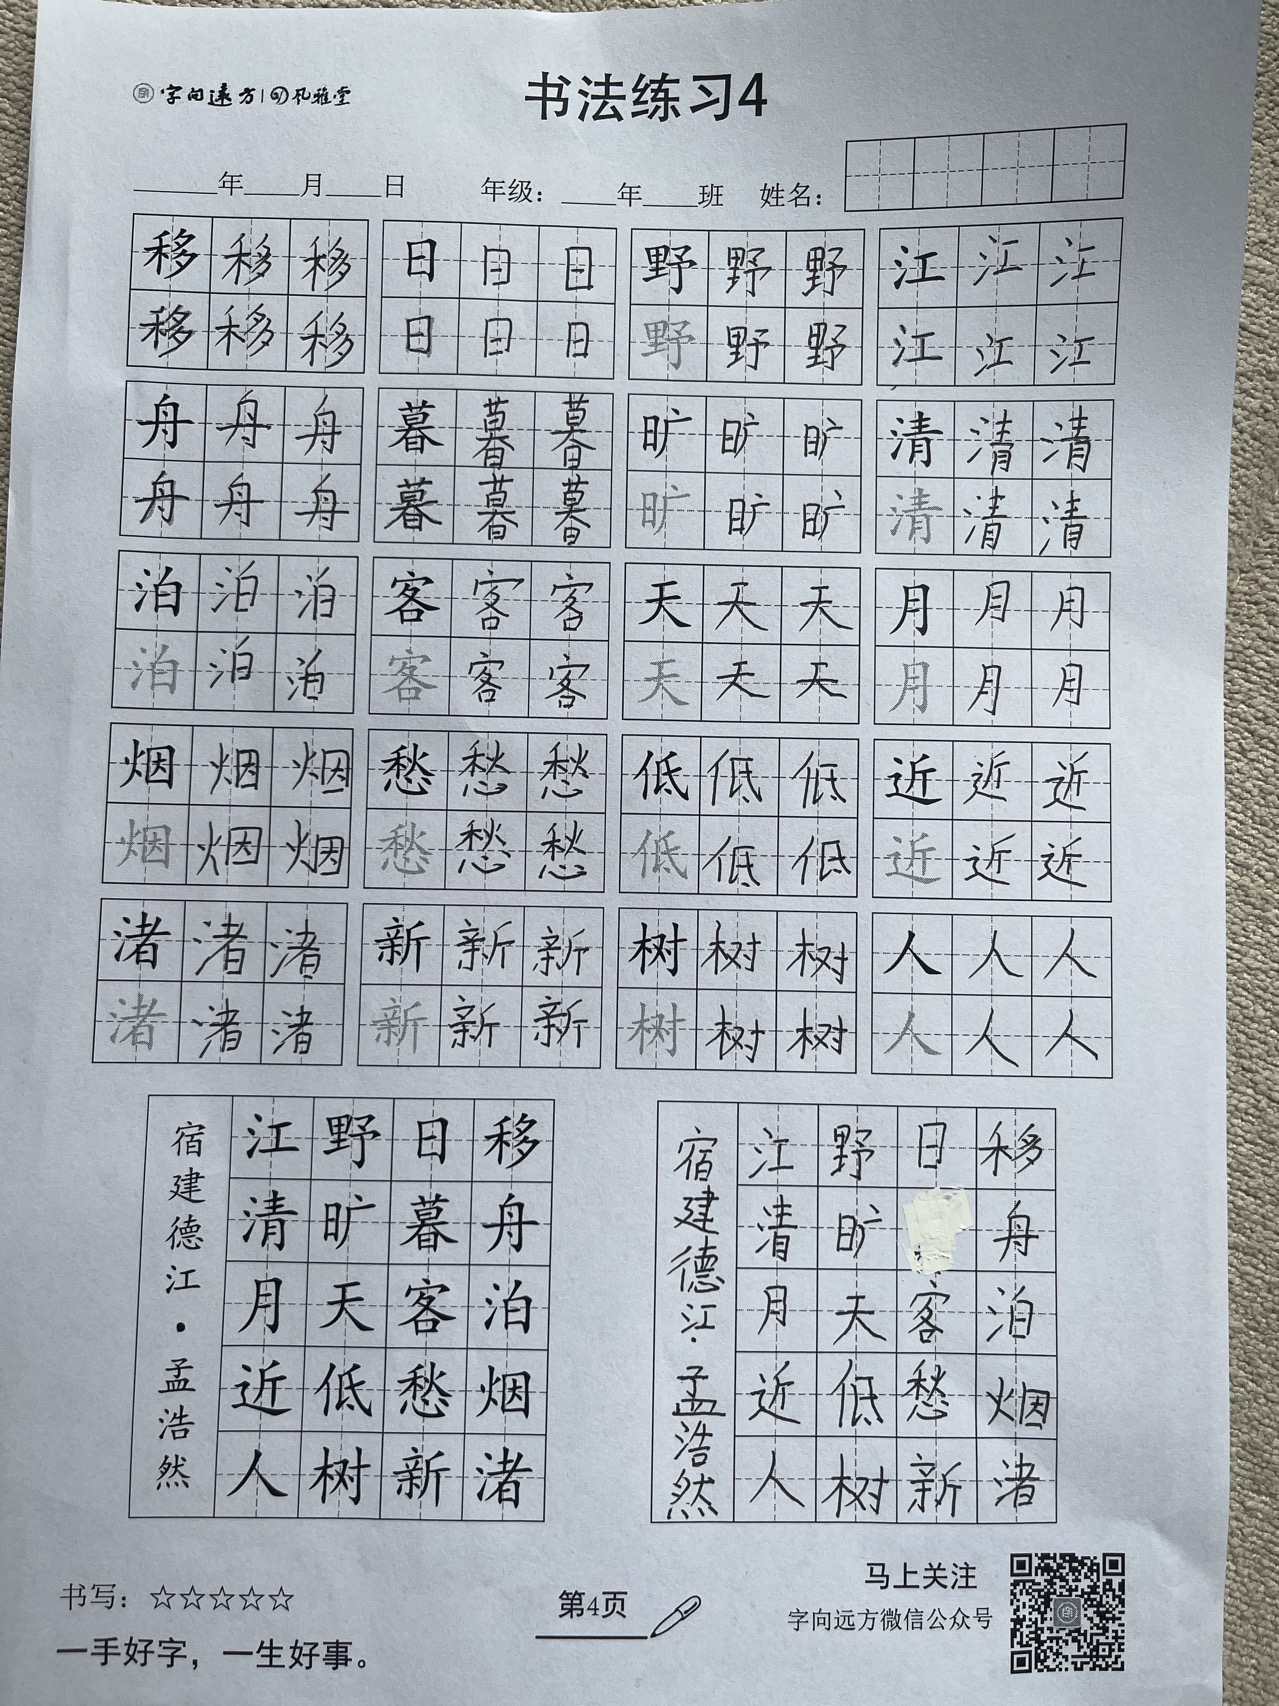 字向遠方 | 孔雅堂
书法练习4
____年____月____日 年级：____年____班 姓名：
移移移 日日日 野野野 江江江
移移移 日日日 野野野 江江江
舟舟舟 暮暮暮 旷旷旷 清清清
舟舟舟 暮暮暮 旷旷旷 清清清
泊泊泊 客客客 天天天 月月月
泊泊泊 客客客 天天天 月月月
烟烟烟 愁愁愁 低低低 近近近
烟烟烟 愁愁愁 低低低 近近近
渚渚渚 新新新 树树树 人人人
渚渚渚 新新新 树树树 人人人
移舟泊烟渚
日暮客愁新
野旷天低树
江清月近人
宿建德江·孟浩然
移舟泊烟渚
日客愁新
野旷天低树
江清月近人
宿建德江·孟浩然
书写：☆☆☆☆☆
一手好字，一生好事。
第4页
马上关注
字向远方微信公众号